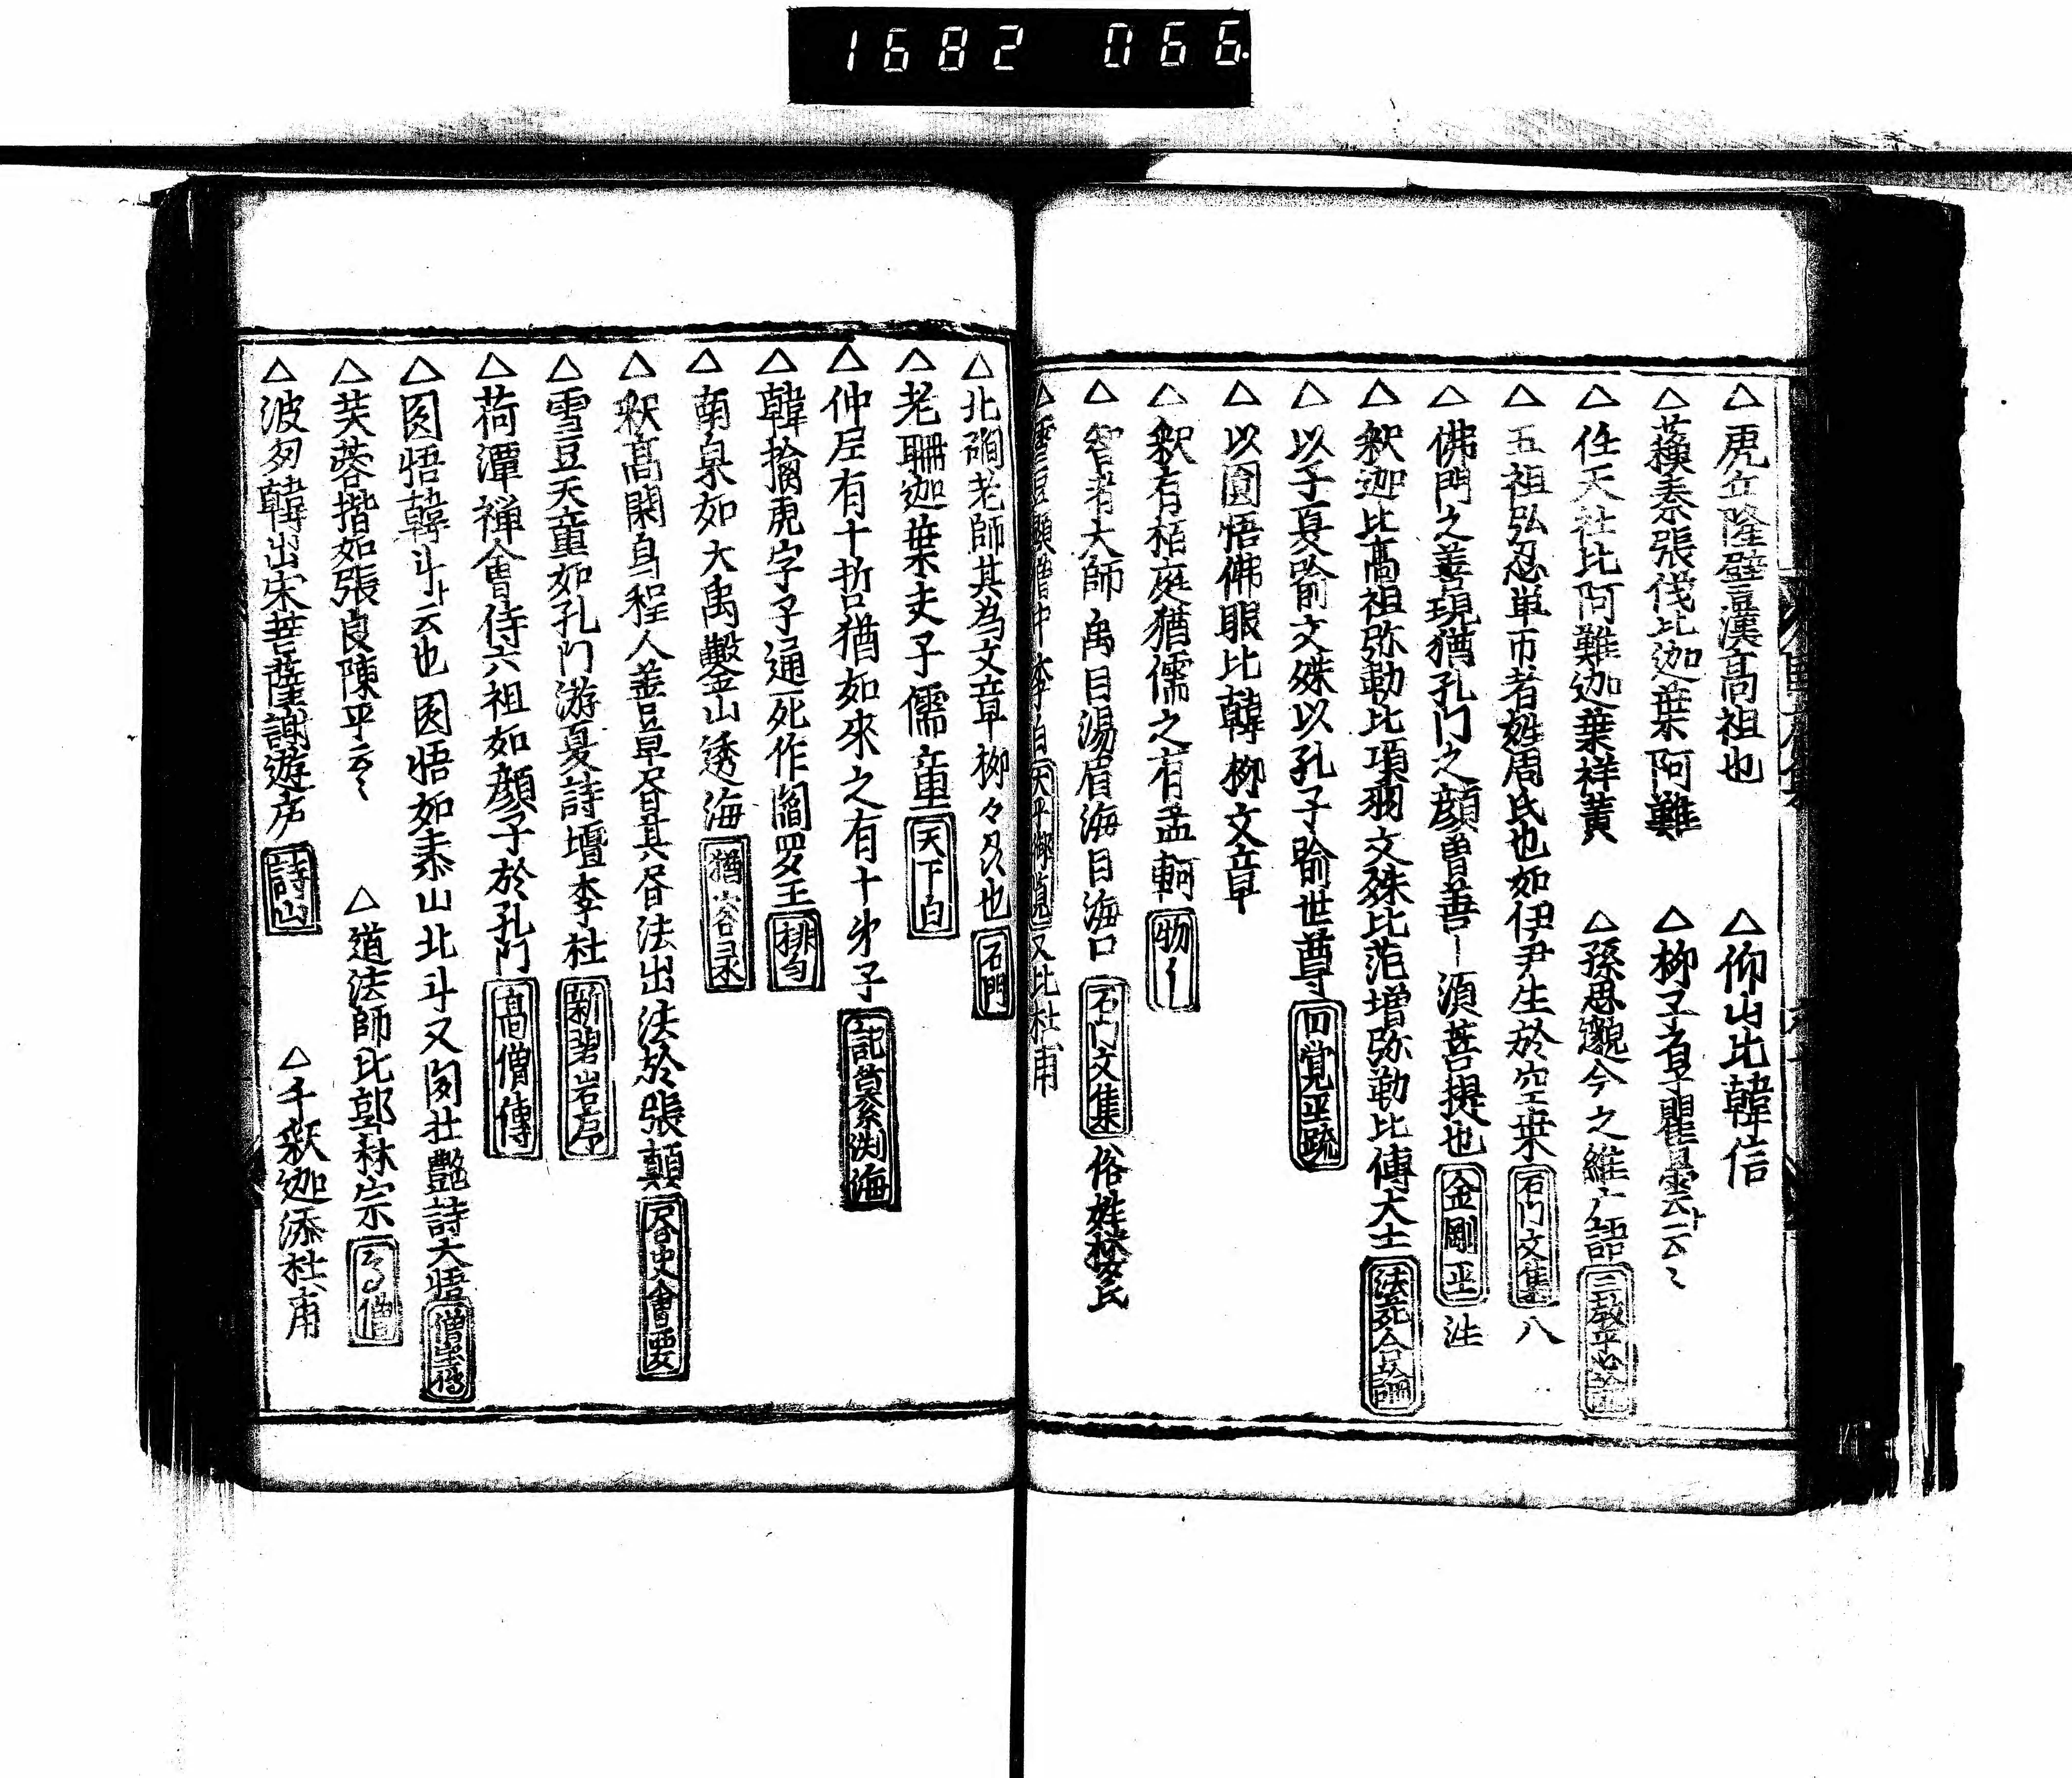 1682 066
△虎丘隆璧漢高祖也 △仰山比韓信
△蘓秦張儀比迦葉阿難 △柳子肩瞿曇云々
△任天社比阿難迦葉祥黄 △孫思邈今之維广詰 三教平心論
△五祖弘忍単丁者姓周氏也如伊尹生於空桒 石門文集 八
△佛門之善現猶孔門之顔曽善ー須菩提也 金剛 注
△釈迦比高祖弥勒比項羽文殊比范増弥勒比傅大士 合論
△以子夏喻文殊以孔子喻世尊 円覚疏
△以圓悟佛眼比韓柳文章
△釈有栢庭猶儒之有孟軻
△智者大師禹目湯眉海目海口 石門文集 俗姓
△雪豆顯僧中李白 又比杜甫
△北磵老師其為文章柳々州也 石門
△老聃迦葉夫子儒童 天下白
△仲尼有十哲猶如來之有十弟子 記纂渕海
△韓擒虎字子通死作閻罗王 排勻
△南泉如大禹鑿山透海
△釈高閑身程人善草昏其昏法出法於張顛 昏史會要
△雪豆天童如孔門游夏詩壇李杜 新碧岩序
△荷潭禅會侍六祖如顔子於孔門 高僧傳
△圓悟韓斗云也圓悟如泰山北斗又 艶詩大悟 僧宝傳
△芙蓉揩如張良陳平云々 △道法師比郭林宗 高僧
△波 韓出宋菩薩謝遊庐 詩山 △千釈迦添杜甫